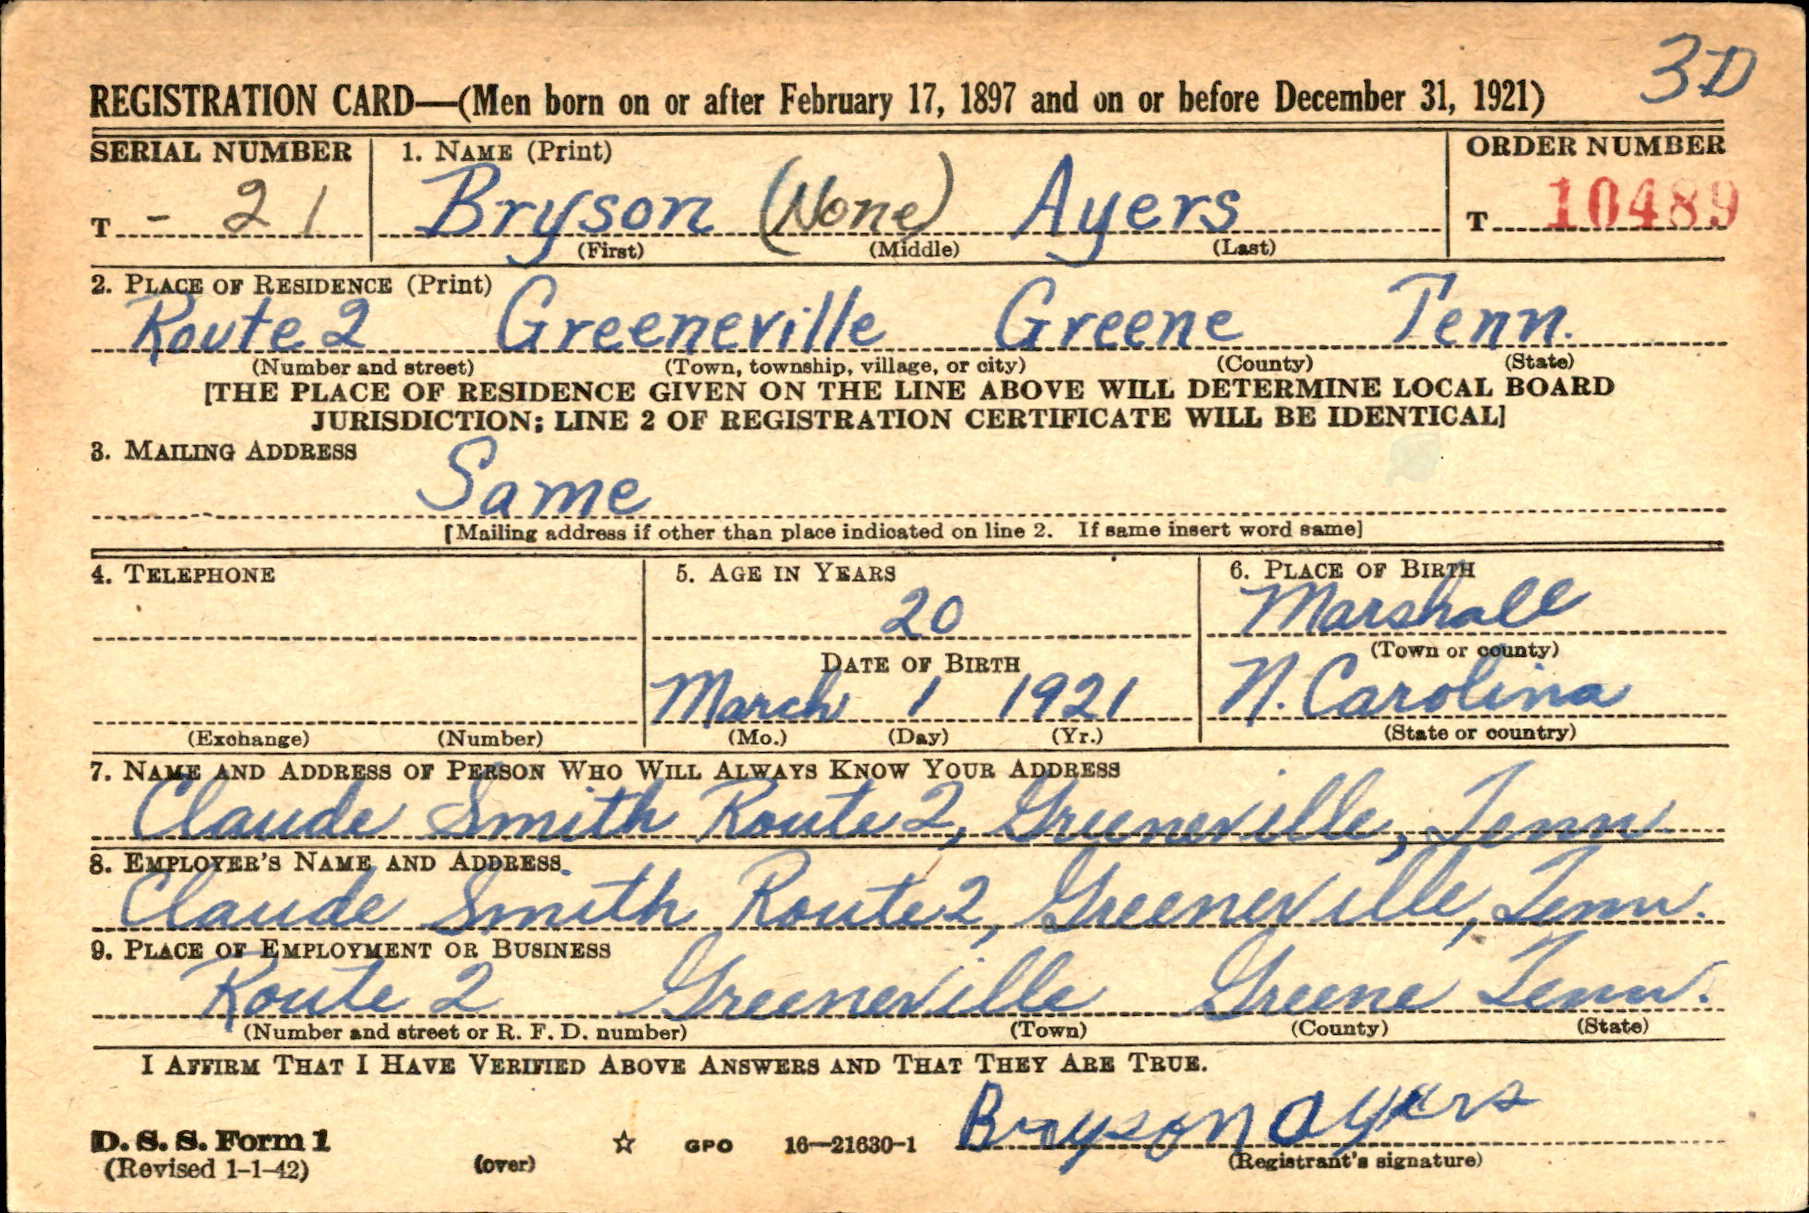 3D
REGISTRATION CARD—(Men born on or after February 17, 1897 and on or before December 31, 1921)
SERIAL NUMBER
1. NAME (Print)
ORDER NUMBER
T - 21
Bryson (None) Ayers
T 10489
(First) (Middle) (Last)
2. PLACE OF RESIDENCE (Print)
Route 2 Greeneville Greene Tenn.
(Number and street) (Town, township, village, or city) (County) (State)
[THE PLACE OF RESIDENCE GIVEN ON THE LINE ABOVE WILL DETERMINE LOCAL BOARD
JURISDICTION; LINE 2 OF REGISTRATION CERTIFICATE WILL BE IDENTICAL]
3. MAILING ADDRESS
Same
[Mailing address if other than place indicated on line 2. If same insert word same]
4. TELEPHONE
(Exchange) (Number)
5. AGE IN YEARS
20
DATE OF BIRTH
March 1 1921
(Mo.) (Day) (Yr.)
6. PLACE OF BIRTH
Marshall
(Town or county)
N. Carolina
(State or country)
7. NAME AND ADDRESS OF PERSON WHO WILL ALWAYS KNOW YOUR ADDRESS
Claude Smith Route 2, Greeneville, Tenn
8. EMPLOYER'S NAME AND ADDRESS
Claude Smith Route 2, Greeneville, Tenn.
9. PLACE OF EMPLOYMENT OR BUSINESS
Route 2 Greeneville Greene Tenn.
(Number and street or R. F. D. number) (Town) (County) (State)
I AFFIRM THAT I HAVE VERIFIED ABOVE ANSWERS AND THAT THEY ARE TRUE.
Bryson Ayers
D. S. S. Form 1
(Revised 1-1-42)
(over)
☆ GPO 16—21630-1
(Registrant's signature)